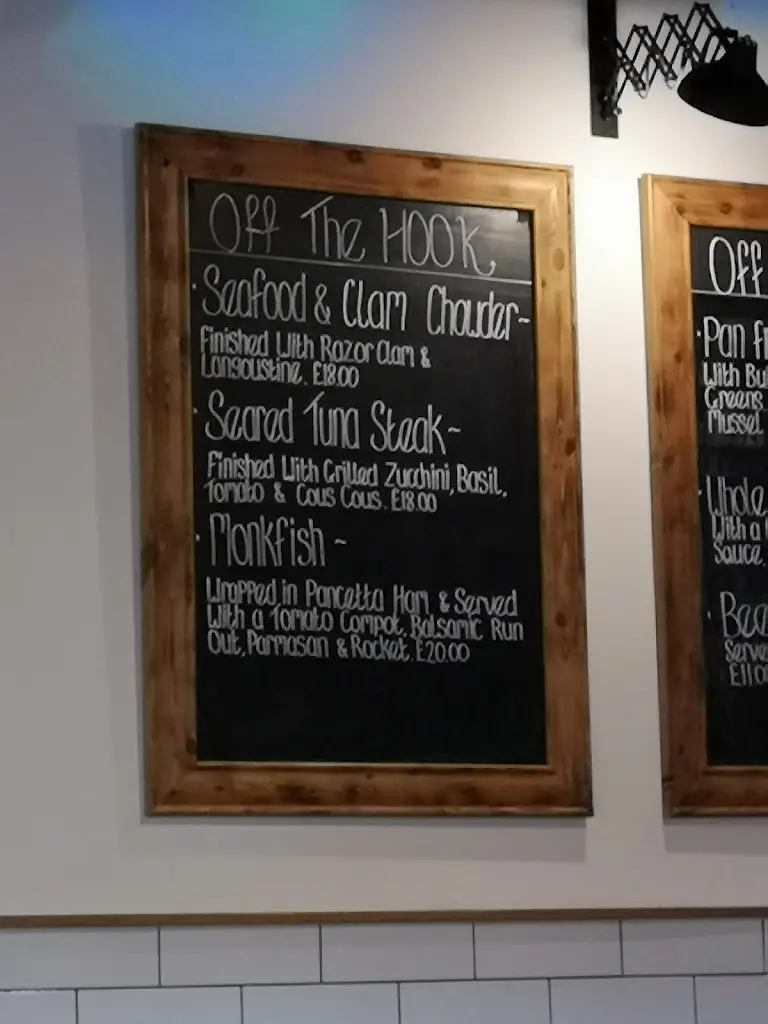 Off The HOOK
Seafood & Clam Chouder~
Finished With Razor Clam &
Langoustine. £18.00
Seared Tuna Steak~
Finished With Grilled Zucchini, Basil,
Tomato & Cous Cous. £18.00
Monkfish ~
Wrapped in Pancetta Ham & Served
With a Tomato Compot, Balsamic Run
Out, Parmasan & Rocket. £20.00
Off
Pan
With
Greens
Mussel
Whole
With a
Sauce.